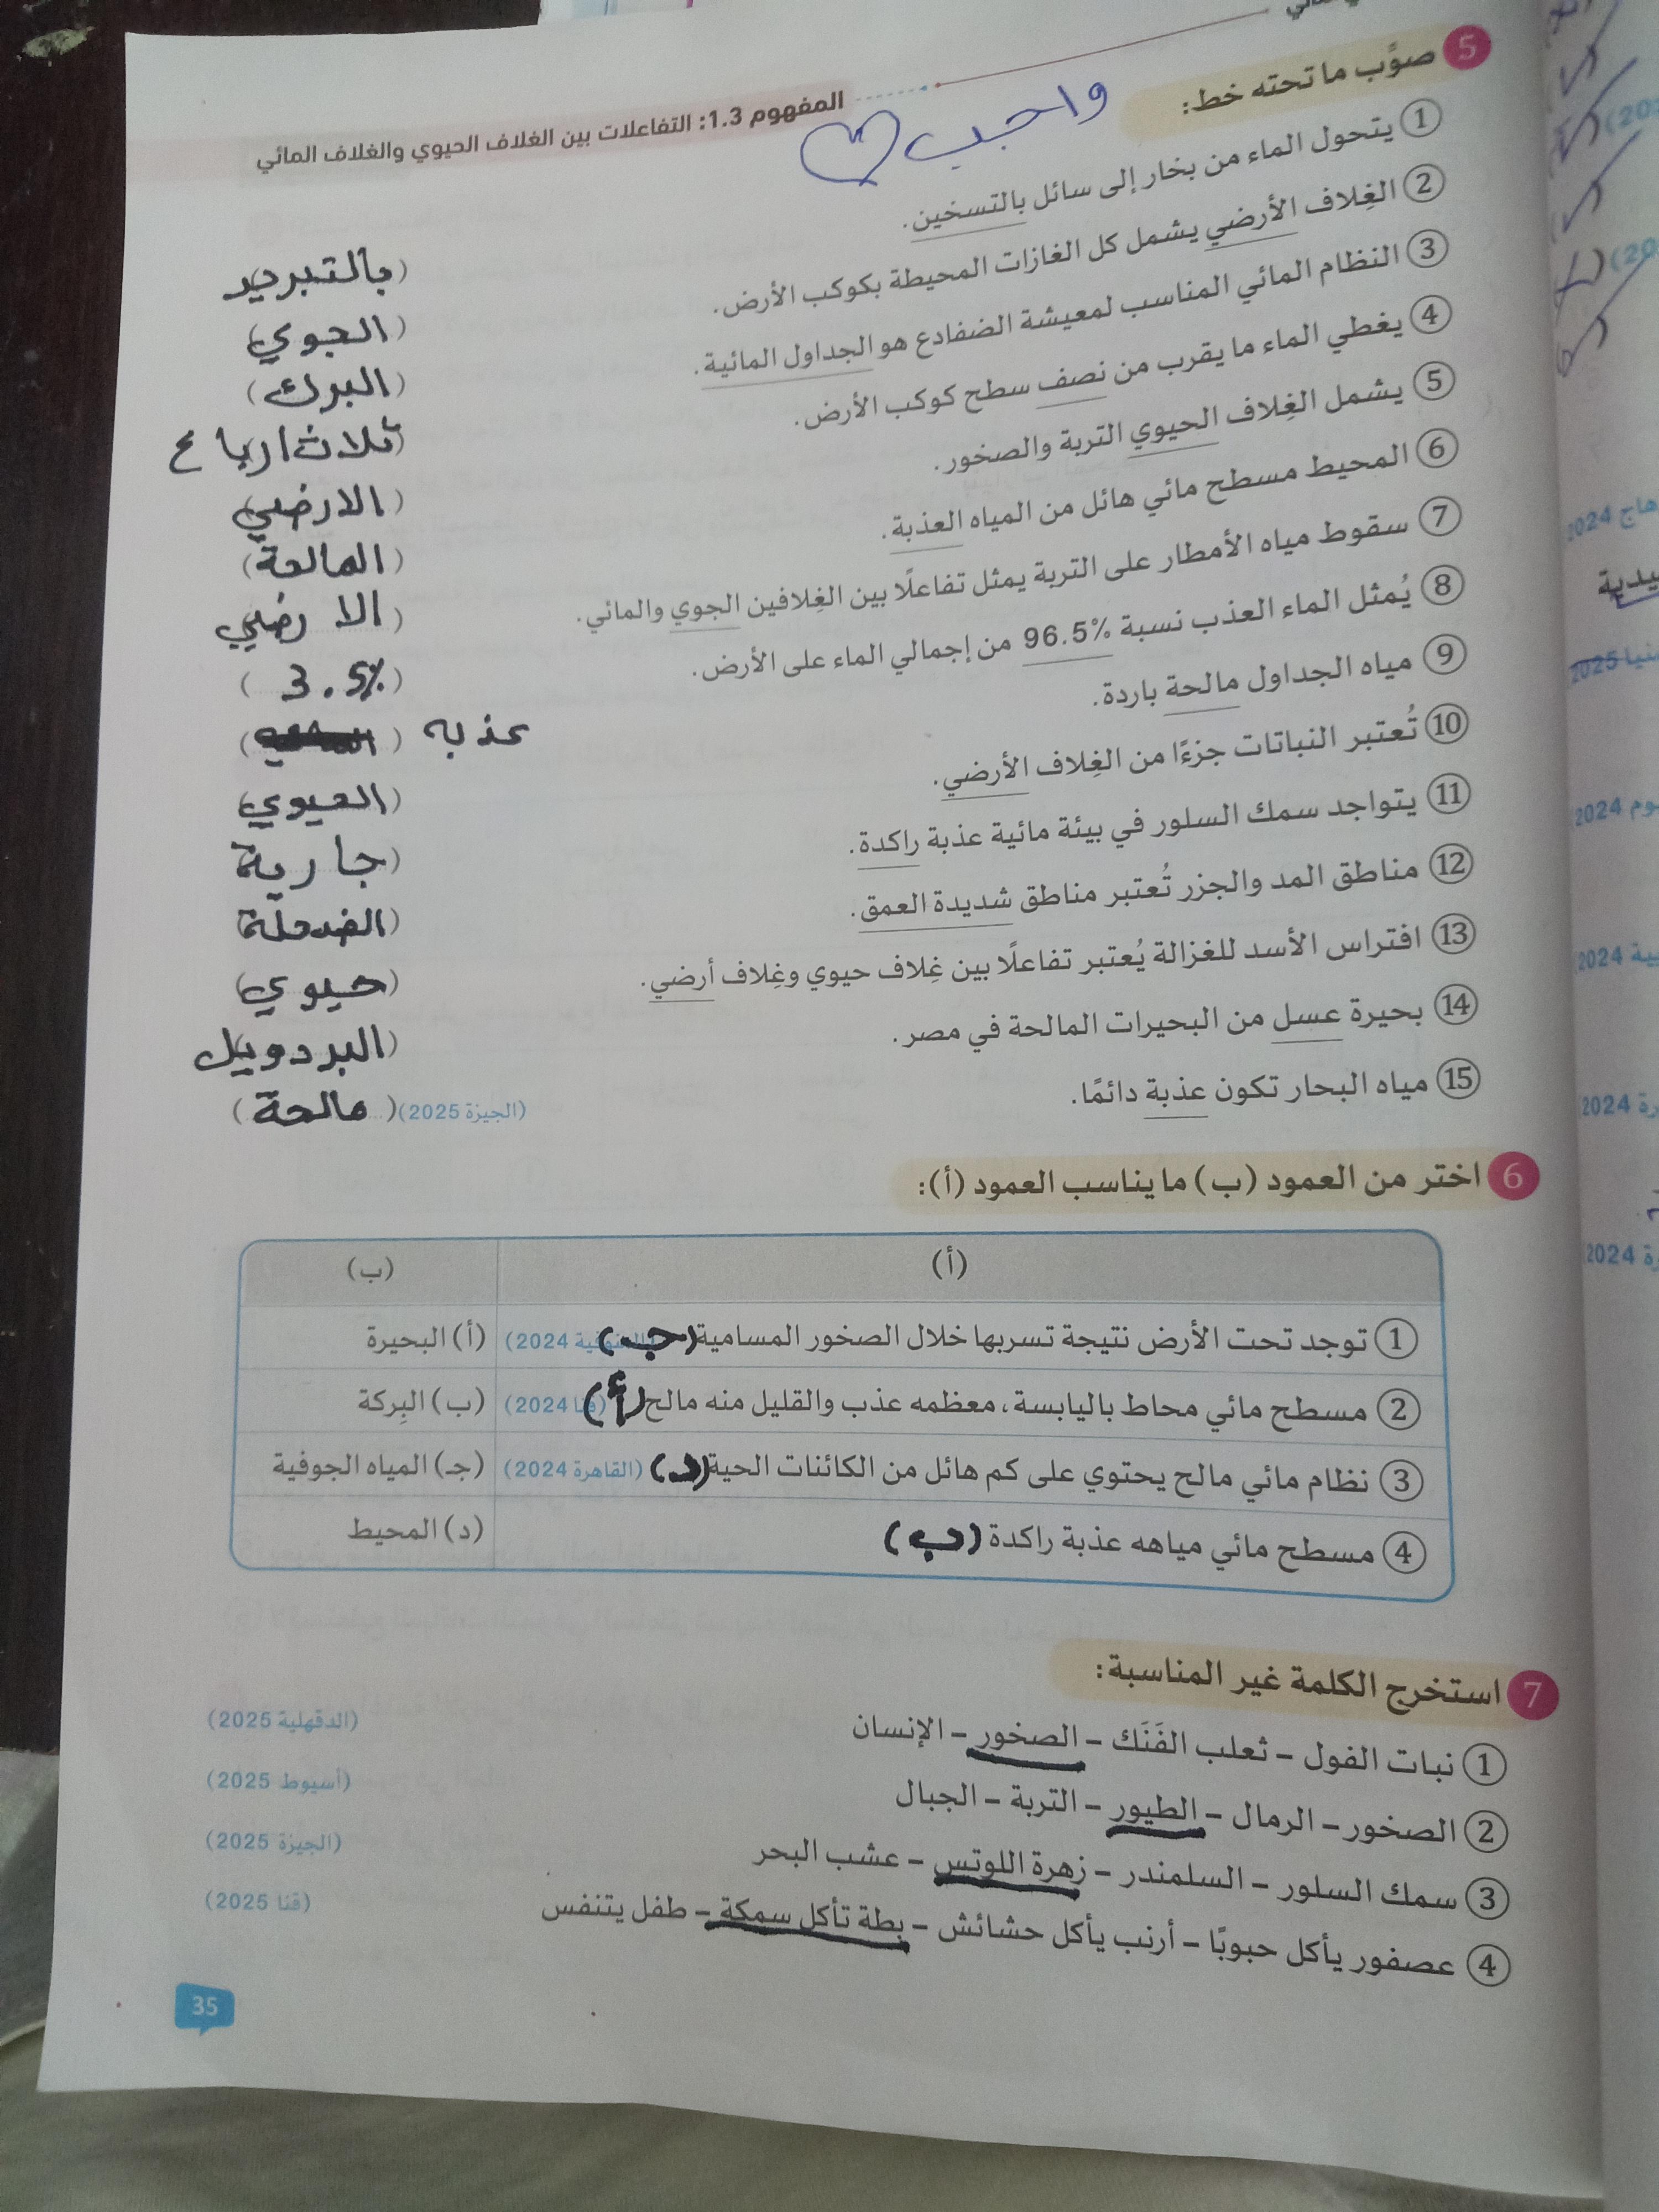 المفهوم 1.3: التفاعلات بين الغلاف الحيوي والغلاف المائي
واجب
5 صوِّب ما تحته خط:
1 يتحول الماء من بخار إلى سائل بالتسخين. (بالتبريد)
2 الغِلاف الأرضي يشمل كل الغازات المحيطة بكوكب الأرض. (الجوي)
3 النظام المائي المناسب لمعيشة الضفادع هو الجداول المائية. (البرك)
4 يغطي الماء ما يقرب من نصف سطح كوكب الأرض. (ثلاث ارباع
5 يشمل الغِلاف الحيوي التربة والصخور. (الارضي)
6 المحيط مسطح مائي هائل من المياه العذبة. (المالحة)
7 سقوط مياه الأمطار على التربة يمثل تفاعلًا بين الغِلافين الجوي والمائي. (الارضي
8 يُمثل الماء العذب نسبة 96.5% من إجمالي الماء على الأرض. (3.5%)
9 مياه الجداول مالحة باردة. عذبه ( )
10 تُعتبر النباتات جزءًا من الغِلاف الأرضي. (الحيوي)
11 يتواجد سمك السلور في بيئة مائية عذبة راكدة. (جارية
12 مناطق المد والجزر تُعتبر مناطق شديدة العمق. (الضحلة
13 افتراس الأسد للغزالة يُعتبر تفاعلًا بين غِلاف حيوي وغِلاف أرضي. (حيوي)
14 بحيرة عسل من البحيرات المالحة في مصر. (البردويل
15 مياه البحار تكون عذبة دائمًا. (الجيزة 2025) (مالحة)
6 اختر من العمود (ب) ما يناسب العمود (أ):
(أ) (ب)
1 توجد تحت الأرض نتيجة تسربها خلال الصخور المسامية (جـ) (المنوفية 2024) (أ) البحيرة
2 مسطح مائي محاط باليابسة، معظمه عذب والقليل منه مالح (أ) (قنا 2024) (ب) البِركة
3 نظام مائي مالح يحتوي على كم هائل من الكائنات الحية (د) (القاهرة 2024) (جـ) المياه الجوفية
4 مسطح مائي مياهه عذبة راكدة (ب) (د) المحيط
7 استخرج الكلمة غير المناسبة:
1 نبات الفول – ثعلب الفَنَك – الصخور – الإنسان (الدقهلية 2025)
2 الصخور – الرمال – الطيور – التربة – الجبال (أسيوط 2025)
3 سمك السلور – السلمندر – زهرة اللوتس – عشب البحر (الجيزة 2025)
4 عصفور يأكل حبوبًا – أرنب يأكل حشائش – بطة تأكل سمكة – طفل يتنفس (قنا 2025)
35
2024
2025
2024
2024
2024
2024